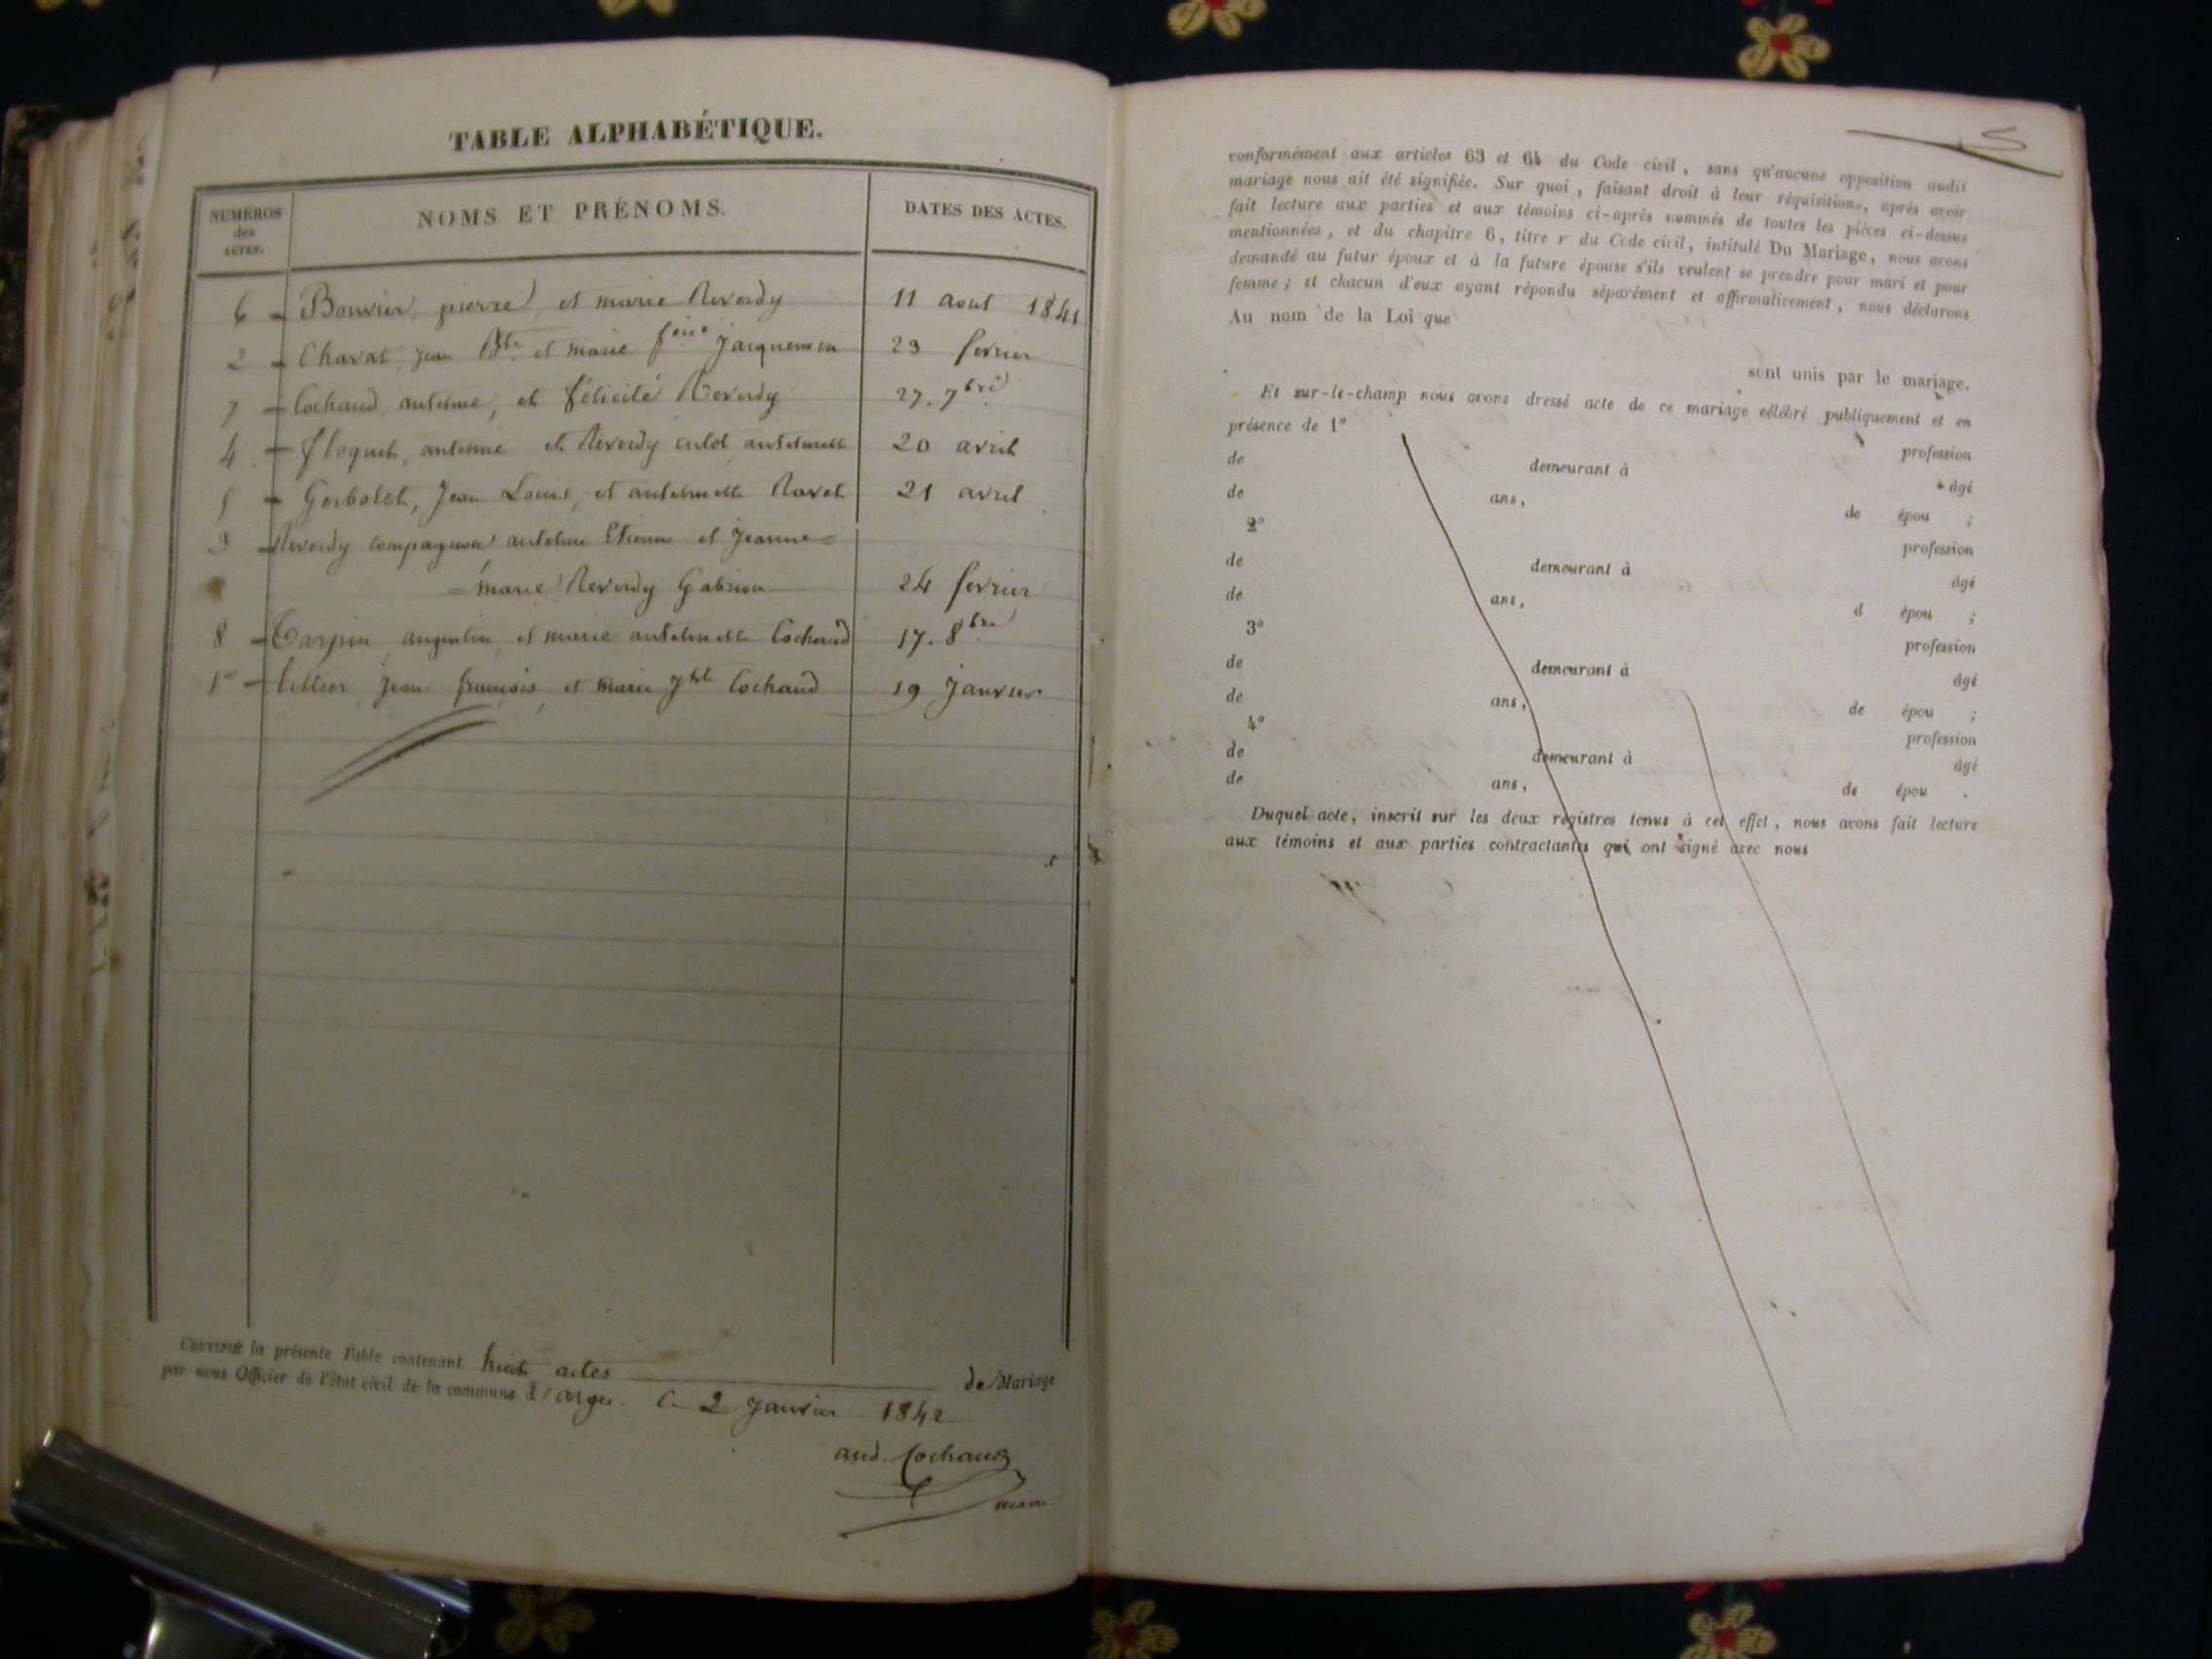 TABLE ALPHABÉTIQUE.
NUMÉROS des ACTES. NOMS ET PRÉNOMS. DATES DES ACTES.
6 Bouvier, pierre, et marie Reverdy 11 aout 1841
2 Charat, jean Bte. et marie jacquemin 23 fevrier
7 Cochaud, antelme, et félicité Reverdy 27. 7bre
4 floquet, antelme et Reverdy culot antelmette 20 avril
5 Gerbolet, Jean Louis, et antelmette Ravet 21 avril
3 Reverdy compagnon antelme Etienne et Jeanne =
= marie Reverdy Gabrion 24 fevrier
8 Carpin, augustin, et marie antelmette Cochaud 17. 8bre
1er Tillier, jean françois, et marie Cochaud 19 Janvier
CERTIFIÉ la présente Table contenant huit actes de Mariage
par nous Officier de l'état civil de la commune d'argis. Ce 2 Janvier 1842
and. Cochaud
maire
conformément aux articles 63 et 64 du Code civil, sans qu'aucune opposition audit
mariage nous ait été signifiée. Sur quoi, faisant droit à leur réquisition, après avoir
fait lecture aux parties et aux témoins ci-après nommés de toutes les pièces ci-dessus
mentionnées, et du chapitre 6, titre v du Code civil, intitulé Du Mariage, nous avons
demandé au futur époux et à la future épouse s'ils veulent se prendre pour mari et pour
femme ; et chacun d'eux ayant répondu séparément et affirmativement, nous déclarons
Au nom de la Loi que
sont unis par le mariage.
Et sur-le-champ nous avons dressé acte de ce mariage célébré publiquement et en
présence de 1°
profession
de demeurant à âgé
de ans, de épou ;
2° profession
de demeurant à âgé
de ans, d épou ;
3° profession
de demeurant à âgé
de ans, de épou ;
4° profession
de demeurant à âgé
de ans, de épou .
Duquel acte, inscrit sur les deux registres tenus à cet effet, nous avons fait lecture
aux témoins et aux parties contractantes qui ont signé avec nous